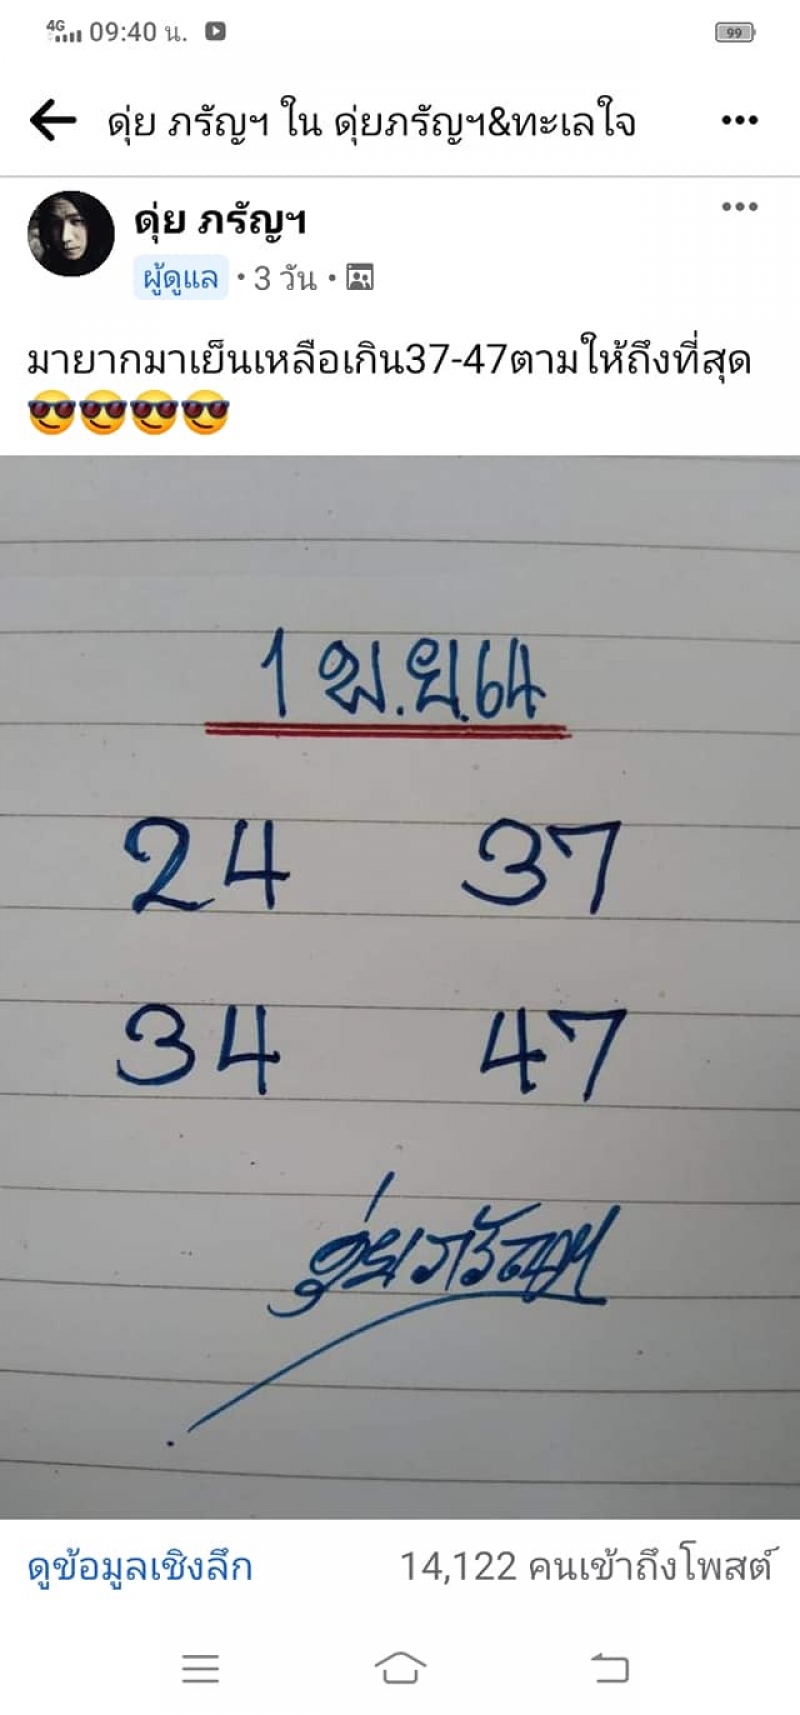 4G 09:40 น. 99
ดุ่ย ภรัญฯ ใน ดุ่ยภรัญฯ&ทะเลใจ
ดุ่ย ภรัญฯ
ผู้ดูแล • 3 วัน •
มายากมาเย็นเหลือเกิน37-47ตามให้ถึงที่สุด
😎😎😎😎
1 พ.ย.64
24 37
34 47
ดุ่ยภรัญฯ
ดูข้อมูลเชิงลึก 14,122 คนเข้าถึงโพสต์